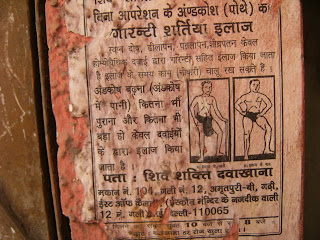 बिना आपरेशन के अंण्डकोश (पोथे) का
गारन्टी शर्तिया इलाज
स्वप्न दोष, ढीलापन, पतलापन, शीघ्रपतन केवल
होम्योपैथिक दवाई द्वारा गारंन्टी सहित इलाज किया जाता
है इलाज के समय काम (नौकरी) चालू रख सकते हैं।
अंडकोष बढ़ना (अंडकोष
में पानी) कितना भी
पुराना और कितना भी
बड़ा हो केवल दवाईयों
के द्वारा इलाज किया
जाता है
पता : शिव शक्ति दवाखाना
मकान नं. 101, गली नं. 12, अमृतपुरी-बी, गढ़ी,
ईस्ट ऑफ कैलाश (ईस्कोन मन्दिर के नजदीक वाली
12 नं. गली में दिल्ली-110065
सुबह 10 बजे से 8 बजे